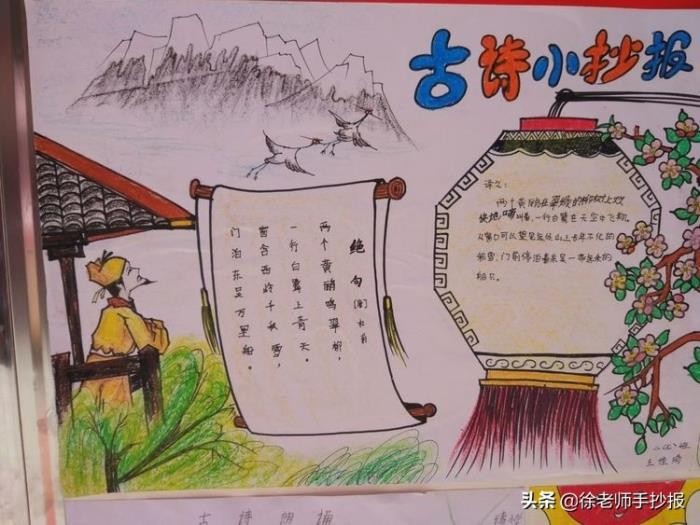 古诗小抄报
绝句
两个黄鹂鸣翠柳，
一行白鹭上青天。
窗含西岭千秋雪，
门泊东吴万里船。
译文：
两个黄鹂在翠绿的柳树上欢
快地鸣叫着，一行白鹭在天空中飞翔，
从窗口可以望见远处山上古年不化的
积雪，门前停泊着来
船只。
古诗朗诵
头条 @徐老师手抄报